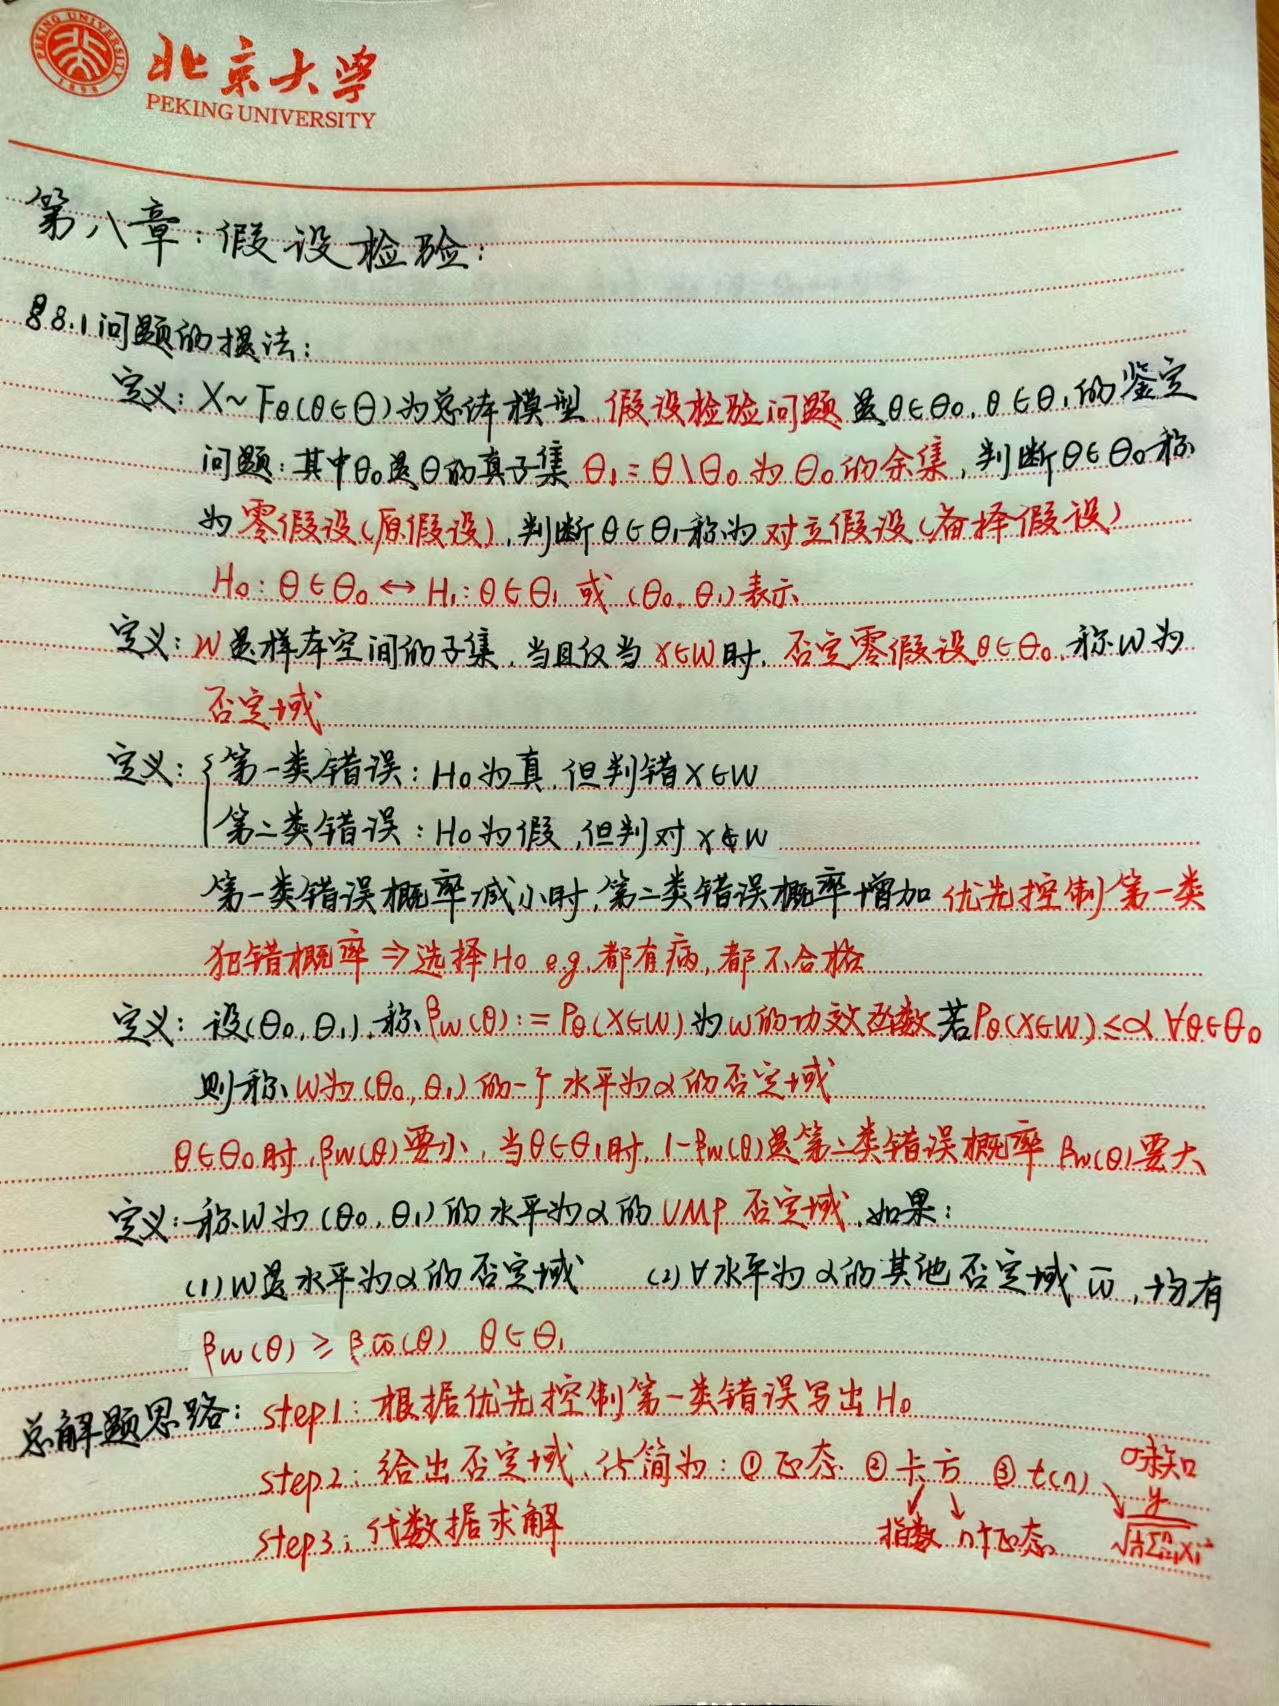 PEKING UNIVERSITY
1898
北京大学
PEKING UNIVERSITY
第八章：假设检验：
§8.1 问题的提法：
定义：X~Fθ(θ∈Θ)为总体模型 假设检验问题是θ∈Θ₀, θ∈Θ₁的鉴定
问题：其中Θ₀是Θ的真子集 Θ₁=Θ\Θ₀为Θ₀的余集，判断θ∈Θ₀称
为零假设(原假设)，判断θ∈Θ₁称为对立假设(备择假设)
H₀: θ∈Θ₀ ↔ H₁: θ∈Θ₁ 或 (Θ₀, Θ₁)表示
定义：W是样本空间的子集，当且仅当 X∈W时，否定零假设θ∈Θ₀，称W为
否定域
定义：{第一类错误：H₀为真，但判错X∈W
第二类错误：H₀为假，但判对 X∉W
第一类错误概率减小时，第二类错误概率增加 优先控制第一类
犯错概率⇒选择H₀ e.g.都有病，都不合格
定义：设(Θ₀, Θ₁)，称βw(θ):=Pθ(X∈W)为W的功效函数 若Pθ(X∈W)≤α ∀θ∈Θ₀
则称W为(Θ₀, Θ₁)的一个水平为α的否定域
θ∈Θ₀时，βw(θ)要小，当θ∈Θ₁时，1-βw(θ)是第二类错误概率 βw(θ)要大
定义：称W为(Θ₀, Θ₁)的水平为α的UMP 否定域，如果：
(1) W是水平为α的否定域 (2) ∀水平为α的其他否定域 W̄，均有
βw(θ) ≥ βw̄(θ) θ∈Θ₁
总解题思路：step1：根据优先控制第一类错误写出H₀
step2：给出否定域，化简为：①正态 ②卡方 ③t(n) σ未知
step3：代数据求解 指数 n个正态 y/√(1/n Σⁿᵢ₌₁xᵢ²)